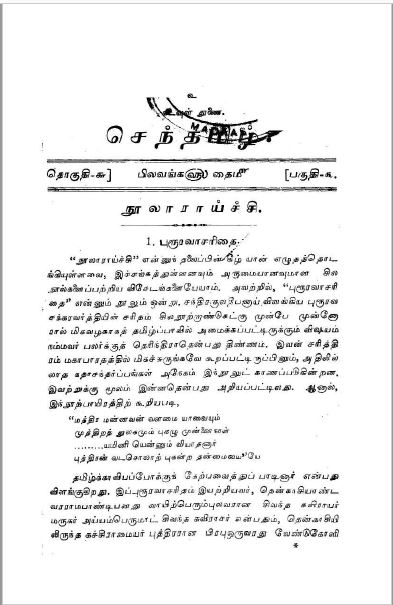 உ
துணை.
செந்தமிழ்.
தொகுதி-௬] பிலவங்க௵ தைமீ [பகுதி-௩.
நூலாராய்ச்சி.
1. புரூரவாசரிதை.
“நூலாராய்ச்சி” என்னுந் தலைப்பின்கீழ் யான் எழுதத்தொட
ங்கியுள்ளவை, இச்சங்கத்துள்ளனவும் அருமையானவுமான சில
நூல்களைப்பற்றிய விசேடங்களேயாம். அவற்றில், “புரூரவாசரி
தை” என்னும் நூலும் ஒன்று. சந்திரகுலதீபனாய் விளங்கிய புரூரவ
சக்கரவர்த்தியின் சரிதம் சிலநூற்றாண்டுகட்கு முன்பே முன்னோ
ரால் மிகவழகாகத் தமிழ்ப்பாவில் அமைக்கப்பட்டிருக்கும் விஷயம்
நம்மவர் பலர்க்குத் தெரிந்திராதென்பது திண்ணம். இவன் சரித்தி
ரம் மகாபாரதத்தில் மிகச்சுருங்கவே கூறப்பட்டிருப்பினும், அதிலில்
லாத கதாசந்தர்ப்பங்கள் அநேகம் இந்நூலுட் காணப்படுகின்றன.
இவற்றுக்கு மூலம் இன்னதென்பது அறியப்பட்டிலது. ஆனால்,
இந்நூற்பாயிரத்திற் கூறியபடி,
“மத்திர மன்னவன் வளமை யாவையும்
முத்திறத் துலகமும் புகழு முன்னைநாள்
.........யமினி யென்னும் வியாதனார்
புத்திரன் வடசொலாற் புகன்ற தன்மையை”யே
தமிழ்க்காவியப்போக்குக் கேற்பவைத்துப் பாடினார் என்பது
விளங்குகிறது. இப்புரூரவாசரிதம் இயற்றியவர், தென்காசியாண்ட
வரராமபாண்டியனது வாயிற்பெரும்புலவரான சிவந்த கவிராயர்
மருகர் அய்யம்பெருமாட் சிவந்த கவிராசர் என்பதும், தென்காசியி
லிருந்த கச்சிராமையர் புத்திரரான பிரபுஒருவரது வேண்டுகோளி
*